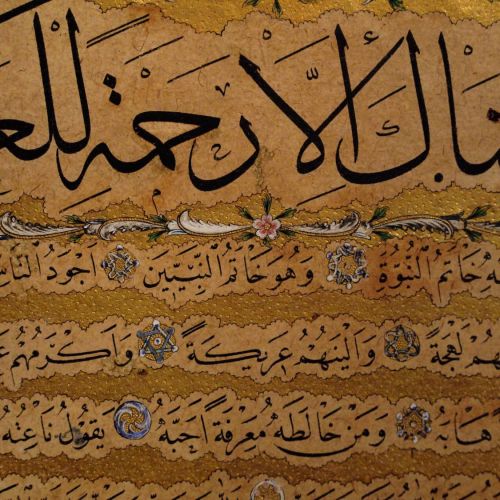 ناك إلا رحمة للعا
خاتم النبوة وهو خاتم النبيين أجود الناس
هم لهجة وألينهم عريكة وأكرمهم ع
هابه ومن خالطه معرفة أحبه يقول ناعته